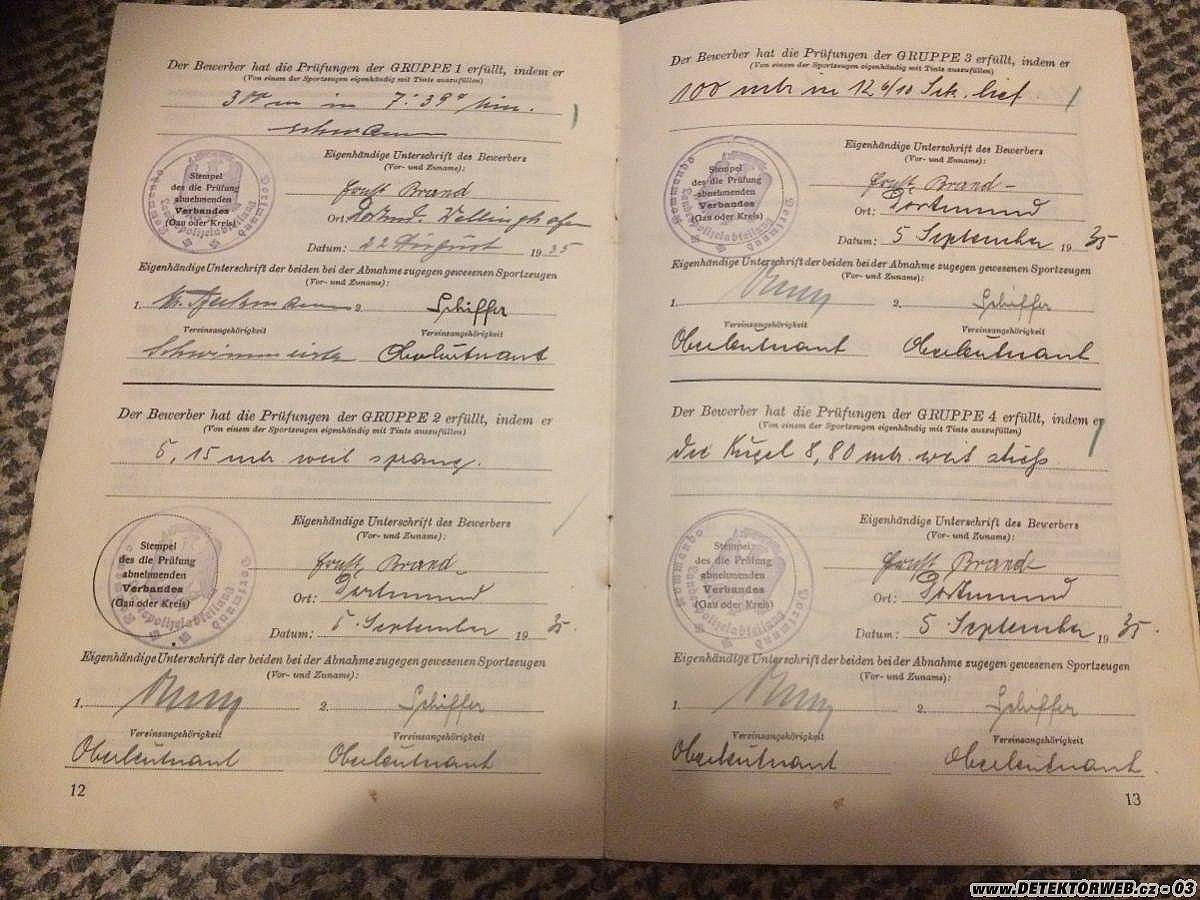 Der Bewerber hat die Prüfungen der GRUPPE 1 erfüllt, indem er
(Von einem der Sportzeugen eigenhändig mit Tinte auszufüllen)
300 m in 7:39⁰ Min.
schwamm
Stempel
des die Prüfung
abnehmenden
Verbandes
(Gau oder Kreis)
Kommando Landespolizeiabteilung Dortmund
Eigenhändige Unterschrift des Bewerbers
(Vor- und Zuname):
Ernst Brand
Ort: Dortmd. Wellinghofen
Datum: 22 August 1935
Eigenhändige Unterschrift der beiden bei der Abnahme zugegen gewesenen Sportzeugen
(Vor- und Zuname):
1. 2. Schiffer
Vereinsangehörigkeit Vereinsangehörigkeit
Schwimmeister Oberleutnant
Der Bewerber hat die Prüfungen der GRUPPE 2 erfüllt, indem er
(Von einem der Sportzeugen eigenhändig mit Tinte auszufüllen)
5,15 mtr. weit sprang.
Stempel
des die Prüfung
abnehmenden
Verbandes
(Gau oder Kreis)
Kommando Landespolizeiabteilung Dortmund
Eigenhändige Unterschrift des Bewerbers
(Vor- und Zuname):
Ernst Brand
Ort: Dortmund
Datum: 5. September 1935.
Eigenhändige Unterschrift der beiden bei der Abnahme zugegen gewesenen Sportzeugen
(Vor- und Zuname):
1. 2. Schiffer
Vereinsangehörigkeit Vereinsangehörigkeit
Oberleutnant Oberleutnant
12
Der Bewerber hat die Prüfungen der GRUPPE 3 erfüllt, indem er
(Von einem der Sportzeugen eigenhändig mit Tinte auszufüllen)
100 mtr in 12 6/10 Sek. lief.
Stempel
des die Prüfung
abnehmenden
Verbandes
(Gau oder Kreis)
Kommando Landespolizeiabteilung Dortmund
Eigenhändige Unterschrift des Bewerbers
(Vor- und Zuname):
Ernst Brand
Ort: Dortmund
Datum: 5 September 1935
Eigenhändige Unterschrift der beiden bei der Abnahme zugegen gewesenen Sportzeugen
(Vor- und Zuname):
1. 2. Schiffer
Vereinsangehörigkeit Vereinsangehörigkeit
Oberleutnant Oberleutnant
Der Bewerber hat die Prüfungen der GRUPPE 4 erfüllt, indem er
(Von einem der Sportzeugen eigenhändig mit Tinte auszufüllen)
die Kugel 8,80 mtr. weit stieß.
Stempel
des die Prüfung
abnehmenden
Verbandes
(Gau oder Kreis)
Kommando Landespolizeiabteilung Dortmund
Eigenhändige Unterschrift des Bewerbers
(Vor- und Zuname):
Ernst Brand
Ort: Dortmund
Datum: 5. September 1935.
Eigenhändige Unterschrift der beiden bei der Abnahme zugegen gewesenen Sportzeugen
(Vor- und Zuname):
1. 2. Schiffer
Vereinsangehörigkeit Vereinsangehörigkeit
Oberleutnant Oberleutnant.
13
www.DETEKTORWEB.cz - 03